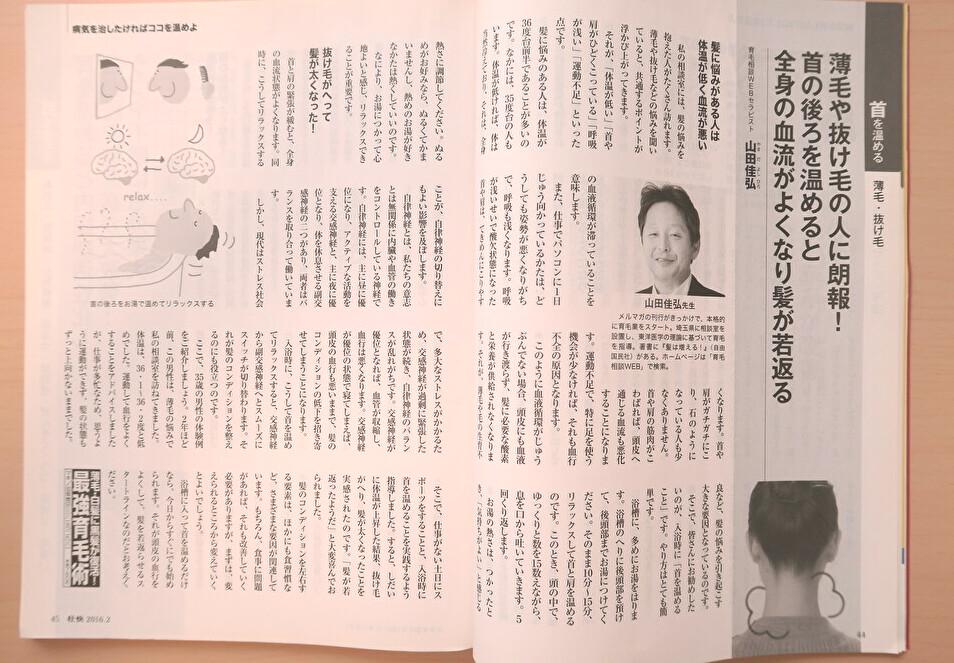 首を温める
薄毛・抜け毛
薄毛や抜け毛の人に朗報！
首の後ろを温めると
全身の血流がよくなり髪が若返る
育毛相談WEBセラピスト
山田佳弘
やまだよしひろ
髪に悩みがある人は
体温が低く血流が悪い
私の相談室には、髪の悩みを
抱えた人がたくさん訪れます。
薄毛や抜け毛などの悩みを聞い
ていると、共通するポイントが
浮かび上がってきます。
それが、「体温が低い」「首や
肩がひどくこっている」「呼吸
が浅い」「運動不足」といった
点です。
髪に悩みのある人は、体温が
36度台前半であることが多いの
です。なかには、35度台の人も
います。体温が低ければ、体は
の血液循環が滞っていることを
意味します。
また、仕事でパソコンに1日
じゅう向かっているかたは、ど
うしても姿勢が悪くなりがち
で、呼吸も浅くなります。呼吸
が浅いせいで酸欠状態になった
山田佳弘先生
メルマガの刊行がきっかけで、本格的
に育毛業をスタート。埼玉県に相談室を
設置し、東洋医学の理論に基づいて育毛
を指導。著書に『髪は増える！』（自由
国民社）がある。ホームページは「育毛
相談WEB」で検索。
くなります。首や
肩がガチガチにこ
り、石のように
なっている人も少
なくありません。
首や肩の筋肉がこ
わばれば、頭皮へ
通じる血流も悪化
することになりま
す。運動不足で、特に足を使う
機会が少なければ、それも血行
不全の原因となります。
このように血液循環がじゅう
ぶんでない場合、頭皮にも血液
が行き渡らず、髪に必要な酸素
と栄養が供給されなくなりま
良など、髪の悩みを引き起こす
大きな要因となっているのです。
そこで、皆さんにお勧めした
いのが、入浴時に「首を温める
こと」です。やり方はとても簡
単です。
浴槽に、多めにお湯をはりま
す。浴槽のへりに後頭部を預け
て、後頭部までお湯につけてく
ださい。そのまま10分〜15分、
リラックスして首と肩を温める
のです。このとき、頭の中で、
ゆっくりと数を15数えながら、
息を口から吐いていきます。5
回くり返します。
お湯の熱さは、つかったと
44
病気を治したければココを温めよ
熱さに調節してください。ぬる
めがお好みなら、ぬるくてかま
いませんし、熱めのお湯が好き
なかたは熱くしていいのです。
なにより、お湯につかって心
地よいと感じ、リラックスでき
ることが重要です。
抜け毛がへって
髪が太くなった！
首と肩の緊張が緩むと、全身
の血流状態がよくなります。同
時に、こうしてリラックスする
relax....
首の後ろをお湯で温めてリラックスする
ことが、自律神経の切り替えに
もよい影響を及ぼします。
自律神経とは、私たちの意志
とは無関係に内臓や血管の働き
をコントロールしている神経で
す。自律神経には、主に昼に優
位になり、アクティブな活動を
支える交感神経と、主に夜に優
位となり、体を休息させる副交
感神経の二つがあり、両者はバ
ランスを取り合って働いていま
す。
しかし、現代はストレス社会
で、多大なストレスがかかるた
め、交感神経が過剰に緊張した
状態が続き、自律神経のバラン
スが乱れがちです。交感神経が
優位となれば、血管が収縮し、
血行は悪くなります。交感神経
が優位の状態で寝てしまえば、
頭皮の血行も悪いままで、髪の
コンディションの低下を招き寄
せてしまうことになります。
入浴時に、こうして首を温め
てリラックスすると、交感神経
から副交感神経へとスムーズに
スイッチが切り替わります。そ
れが髪のコンディションを整え
るのにも役立つのです。
ここで、35歳の男性の体験例
をご紹介しましょう。2年ほど
前、この男性は、薄毛の悩みで
私の相談室を訪ねてきました。
体温は、36・1〜36・2度と低
めでした。運動して血行をよく
することをアドバイスしました
が、仕事が多忙なため、思うよ
うに運動ができず、髪の状態も
ずっと上向かないままでした。
そこで、仕事がない土日にス
ポーツをすることと、入浴時に
首を温めることを実践するよう
指導しました。すると、しだい
に体温が上昇した結果、抜け毛
がへり、髪が太くなったことを
実感されたのです。「髪が若
返ったようだ」と大変喜んでお
られました。
髪のコンディションを左右す
る要素は、ほかにも食習慣な
ど、さまざまな要因が関連して
います。もちろん、食事に問題
があれば、それも改善していく
必要がありますが、まずは、変
えられるところから変えていく
とよいでしょう。
浴槽に入って首を温めるだけ
なら、今日からすぐにでも始め
られます。それが頭皮の血行を
よくして、髪を若返らせるス
タートラインなのだとお考えく
ださい。
最強育毛術
45 壮快 2016.2